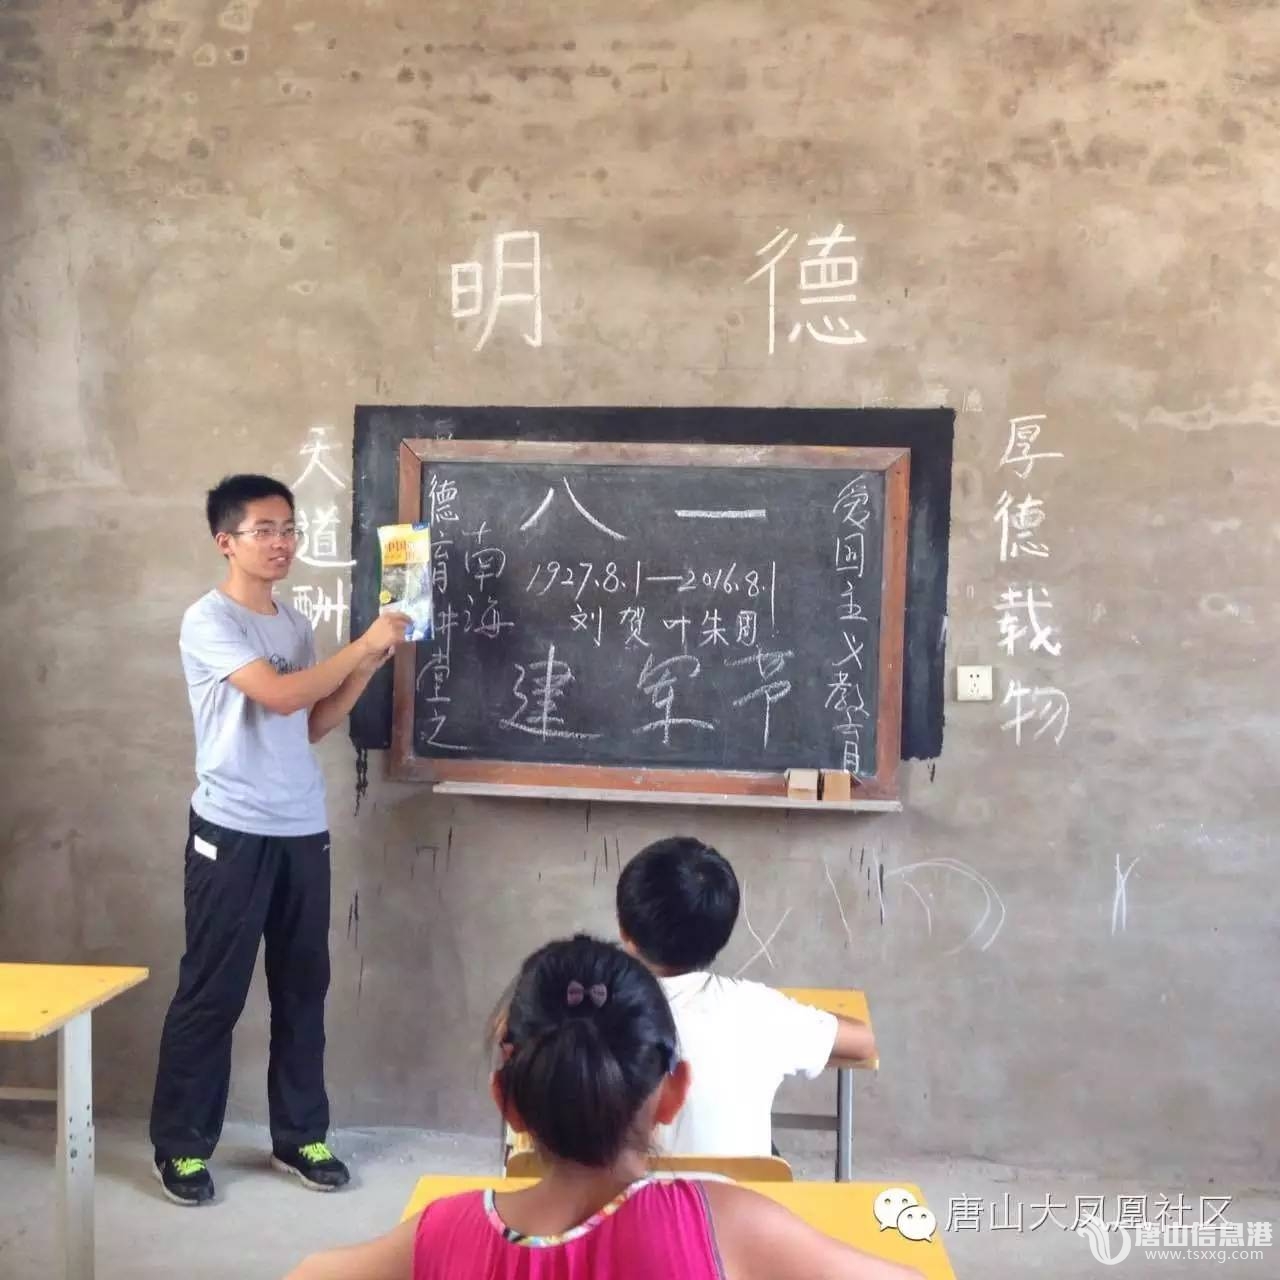 明 德
天道酬
厚德载物
德育讲堂之
南海
八一
1927.8.1—2016.8.1
刘贺叶朱周
建军节
爱国主义教育
中国
唐山大凤凰社区
唐山信息港
www.tsxxg.com